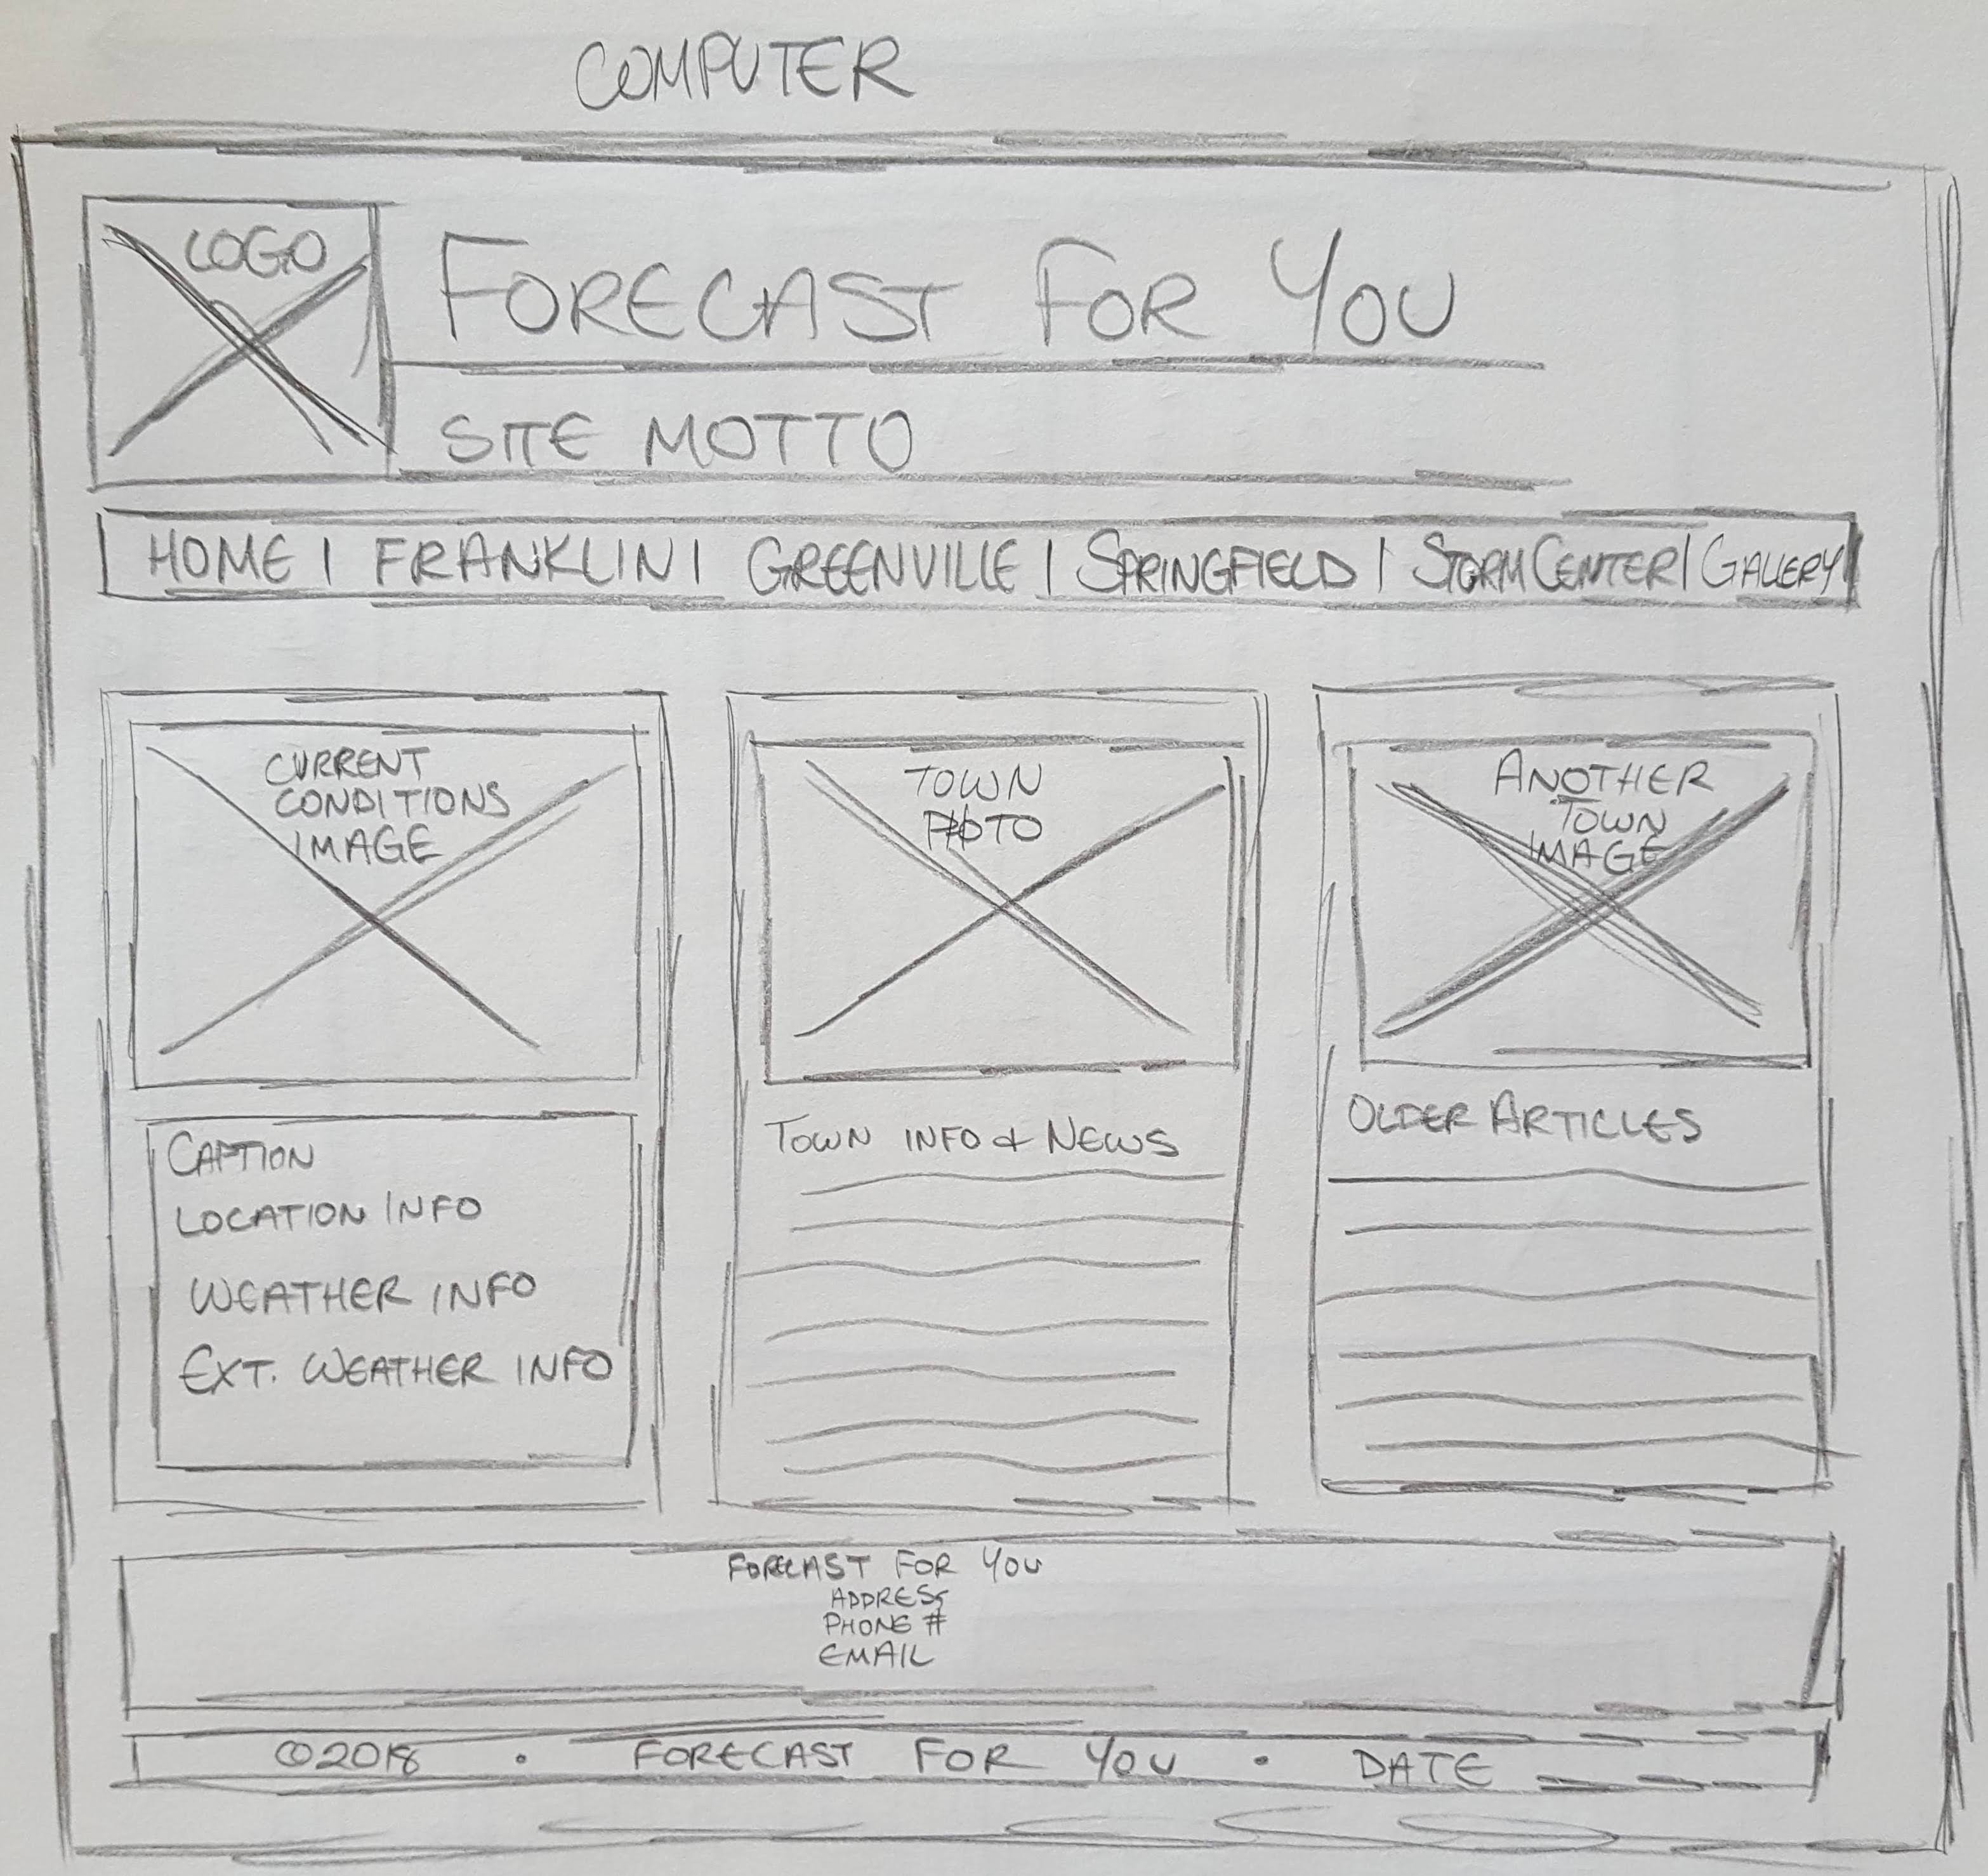 COMPUTER
LOGO
FORECAST FOR YOU
SITE MOTTO
HOME | FRANKLIN | GREENVILLE | SPRINGFIELD | STORM CENTER | GALLERY
CURRENT
CONDITIONS
IMAGE
CAPTION
LOCATION INFO
WEATHER INFO
EXT. WEATHER INFO
TOWN
PHOTO
TOWN INFO & NEWS
ANOTHER
TOWN
IMAGE
OLDER ARTICLES
FORECAST FOR YOU
ADDRESS
PHONE #
EMAIL
©2018 • FORECAST FOR YOU • DATE